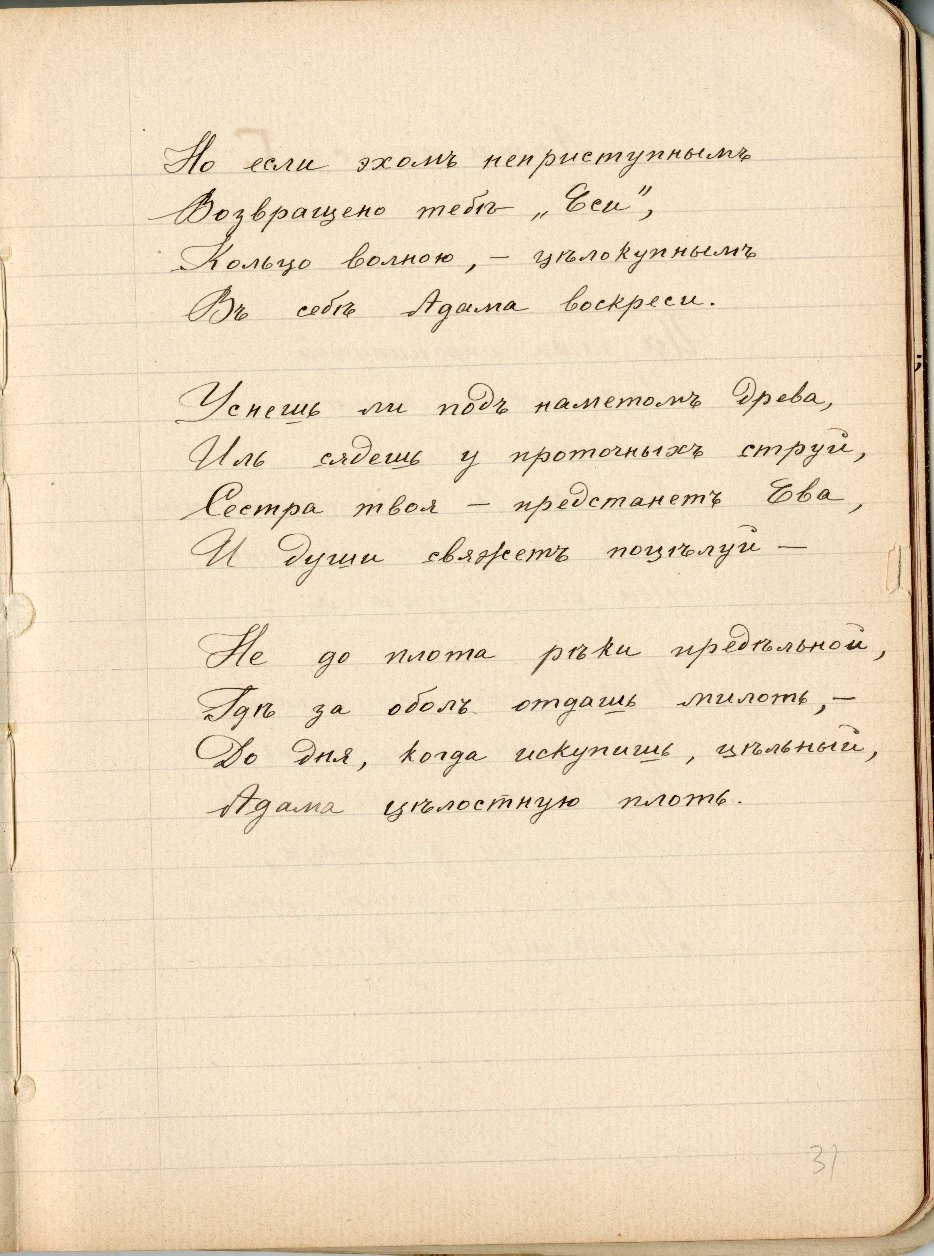 Но если эхомъ неприступнымъ
Возвращено тебѣ „Еси",
Кольцо волною, – цѣлокупнымъ
Въ себѣ Адама воскреси.
Уснешь ли подъ наметомъ древа,
Иль сядешь у проточныхъ струй,
Сестра твоя – предстанетъ Ева,
И души свяжетъ поцѣлуй –
Не до плота рѣки предѣльной,
Гдѣ за оболъ отдашь милоть, –
До дня, когда искупишь, цѣльный,
Адама цѣлостную плоть.
31